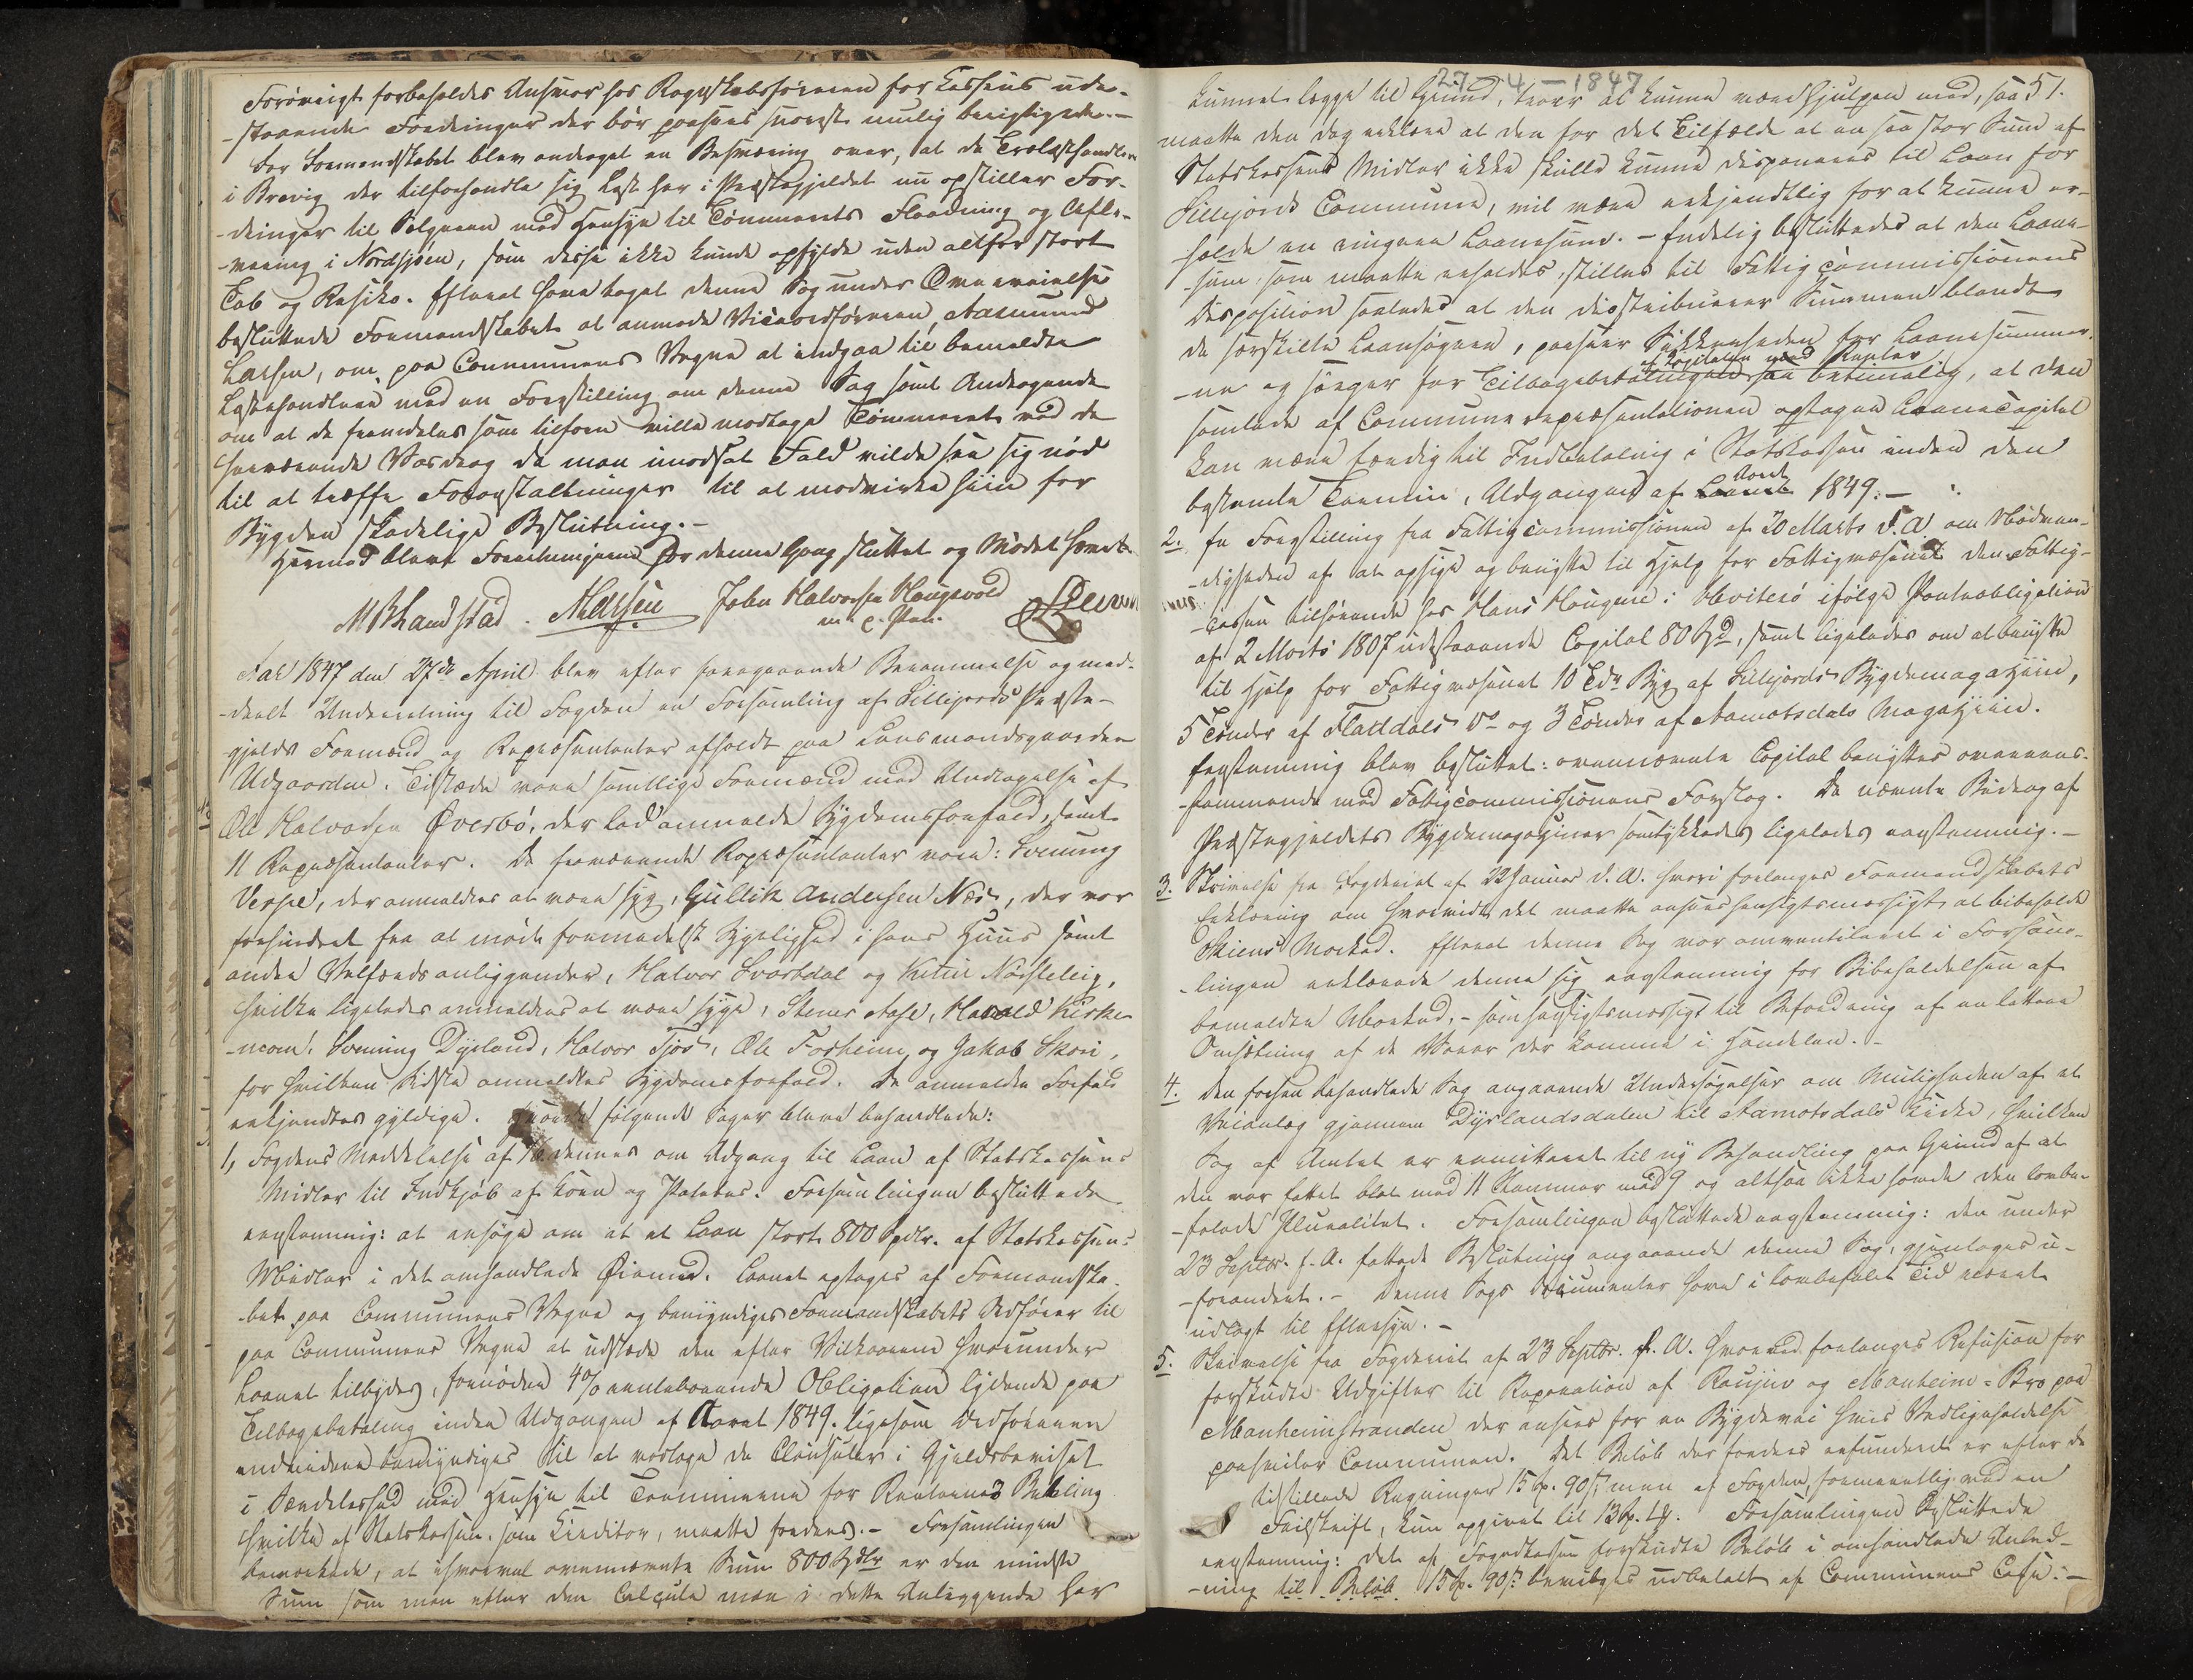 Forøvrigt forbeholdes Ansvar hos Regnskabsføreren for Cassens ude-
-staaende Fordringer der bør paasees snarest mulig berigtigede. -
For Formandskabet blev andraget en Besværing over, at de Trælasthandlere
i Brevig der tilforhandle sig Last her i Præstegjeldet nu opstiller For-
-dringer til Sælgeren med Hensyn til Tømmerets Flaadning og Afle-
-vering i Nordsjøen, som disse ikke kunde opfylde uden altfor stort
Tab og Risiko. Efterat have taget denne Sag under Overveielse
besluttede Formandskabet at anmode Viceordføreren, Aasmund
Larsen, om paa Communens Vegne at indgaa til bemeldte
Lasthandlere med en Forestilling om denne Sag samt Andragende
om at de fremdeles som tilforn ville modtage Tømmeret ved de
herværende Vasdrag da man imodsat Fald vilde see sig nød
til at træffe Foranstaltninger til at modvirke hiin for
Bygden skadelige Beslutning. -
Hermed blev Forretningerne for denne Gang sluttet og Mødet hævet.
M B Landstad. ALarsen John Halvorsen Haugevold
m. p. Pen.
Aar 1847 den 27de April blev efter foregaaende Berammelse og med-
-deelt Underretning til Fogden en Forsamling af Sillejords Præste-
gjelds Formænd og Repræsentanter afholdt paa Lensmandsgaarden
Utgaarden. Tilstæde vare samtlige Formænd med Undtagelse af
Ole Halvorsen Øverbø, der lod anmelde Sygdomsforfald, samt
11 Repræsentanter. De fraværende Repræsentanter vare: Svenung
Verpe, der anmeldtes at være syg, Gullik Andersen Næs, der var
forhindret fra at møde formedelst Sygelighed i hans Huus samt
andre Velfærdsanliggender, Halvor Svartdal og Ketil Nordsteleig,
hvilke ligeledes anmeldtes at være syge, Stener Aase, Harald Kirke-
-moen, Svenung Dysland, Halvor Tjøs, Ole Forheim og Jakob Skori,
for hvilken sidste anmeldtes Sygdomsforfald. De anmeldte Forfald
erkjendtes gyldige. følgende Sager bleve behandlede:
1, Fogdens Meddelelse af 16 dennes om Adgang til Laan af Statskassens
Midler til Indkjøb af Korn og Poteter. Forsamlingen besluttede
eenstemmig: at ansøge om at et Laan stort 800 Spdlr. af Statskassens
Midler i det omhandlede Øiemed. Laanet optages af Formandska-
-bet paa Communens Vegne og bemyndiges Formandskabets Ordfører til
paa Communens Vegne at udstæde den efter Vilkaarene hvorunder
Laanet tilbydes, fornødne 4% rentebærende Obligation lydende paa
Tilbagebetaling inden Udgangen af Aaret 1849. ligesom Ordføreren
endvidere bemyndiges til at vedtage de Clausuler i Gjeldsbeviset
i Særdeleshed med Hensyn til Terminerne for Renternes Betaling
hvilke af Statskassen, som Kreditor, maatte fordres. - Forsamlingen
bemærkede, at ihvorvel ovennævnte Sum 800 Spdlr er den mindste
Sum som man efter den Calcule man i dette Anliggende har
27-4-1847
kunnet lægge til Grund, troer at kunne være hjulpen med, saa 51.
maatte den dog erklære at den for det Tilfælde at en saa stor Sum af
Statskassens Midler ikke skulde kunne disponeres til Laan for
Sillejords Commune, vil være erkjendtlig for at kunne er-
holde en ringere Laanesum. - Endelig besluttedes at den Laane-
-sum som maatte erholdes, stilles til Fattigcommissionens
Disposition saaledes at den distribuerer Summen blandt
de forskillte Laansøgere, paaseer Sikkerheden for Laanesummer-
af Capitalen med Renter
-ne og sørger for Tilbagebetalingen saa betimelig, at den
samlede af Communerepræsentationen optagne Laanecapital
kan være færdig til Indbetaling i Statskassen inden den
bestemte Termin, Udgangen af Laanet Aaret 1849. -
2. En Forestilling fra Fattigcommissionen af 20 Marts d. A. om Nødven-
-digheden af at opsige og benytte til Hjelp for Fattigvæsenet den Fattig-
-cassen tilhørende hos Hans Haugene i Hviteseid ifølge Panteobligation
af 2 Marts 1807 udestaaende Capital 80 Spd, samt ligeledes om at benytte
til Hjelp for Fattigvæsenet 10 Tdr Byg af Sillejords Bygdemagazin,
5 Tønder af Flatdals do og 3 Tønder af Aamotsdals Magazin.
Eenstemmig blev besluttet: ovennævnte Capital benyttes overeens-
-stemmende med Fattigcommissionens Forslag. De nævnte Bidrag af
Præstegjeldets Bygdemagaziner samtykkedes ligeledes eenstemmig. -
3. Skrivelse fra Fogderiet af 22 Januar d. A. hvori forlanges Formandskabets
Erklæring om hvorvidt det maatte ansees hensigtsmæssigt at bibeholde
Skiens Marked. Efterat denne Sag var omventileret i Forsam-
-lingen erklærede denne sig eenstemmig for Bibeholdelsen af
bemeldte Marked, - som hensigtsmæssigt til Befordring af en lettere
Omsætning af de Varer der komme i Handelen. -
4. Den forhen behandlede Sag angaaende Undersøgelser om Muligheden af et
Veianlæg gjennem Dyslandsdalen til Aamotsdals Kirke, hvilken
Sag af Amtet er remitteret til ny Behandling paa Grund af at
den var fattet blot med 11 Stemmer mod 9 og altsaa ikke havde den lovbe-
-falede Pluralitet. Forsamlingen besluttede eenstemmig: den under
23 Septbr. f. A. fattede Beslutning angaaende denne Sag, gjentages u-
-forandret. - Denne Sags Documenter have i lovbefalet Tid været
udlagt til Eftersyn. -
5. Skrivelse fra Fogderiet af 23 Septbr. f. A. hvorved forlanges Refusion for
forskudte Udgifter til Reparation af Raujuv og Manheim-Bro paa
Manheimstranden der ansees for en Bygdevei hvis Vedligeholdelse
paahviler Communen. Det Beløb der fordres refunderet er efter de
tilstillede Regninger 15 Sp. 90 ß men af Fogden, formeentlig ved en
Feilskrift, kun opgivet til 13 Sp. Forsamlingen besluttede
eenstemmig: det af Fogedkassen forskudte Beløb i omhandlede Anled-
-ning til Beløb 15 Sp. 90 ß bevilges udbetalt af Communens Casse. -